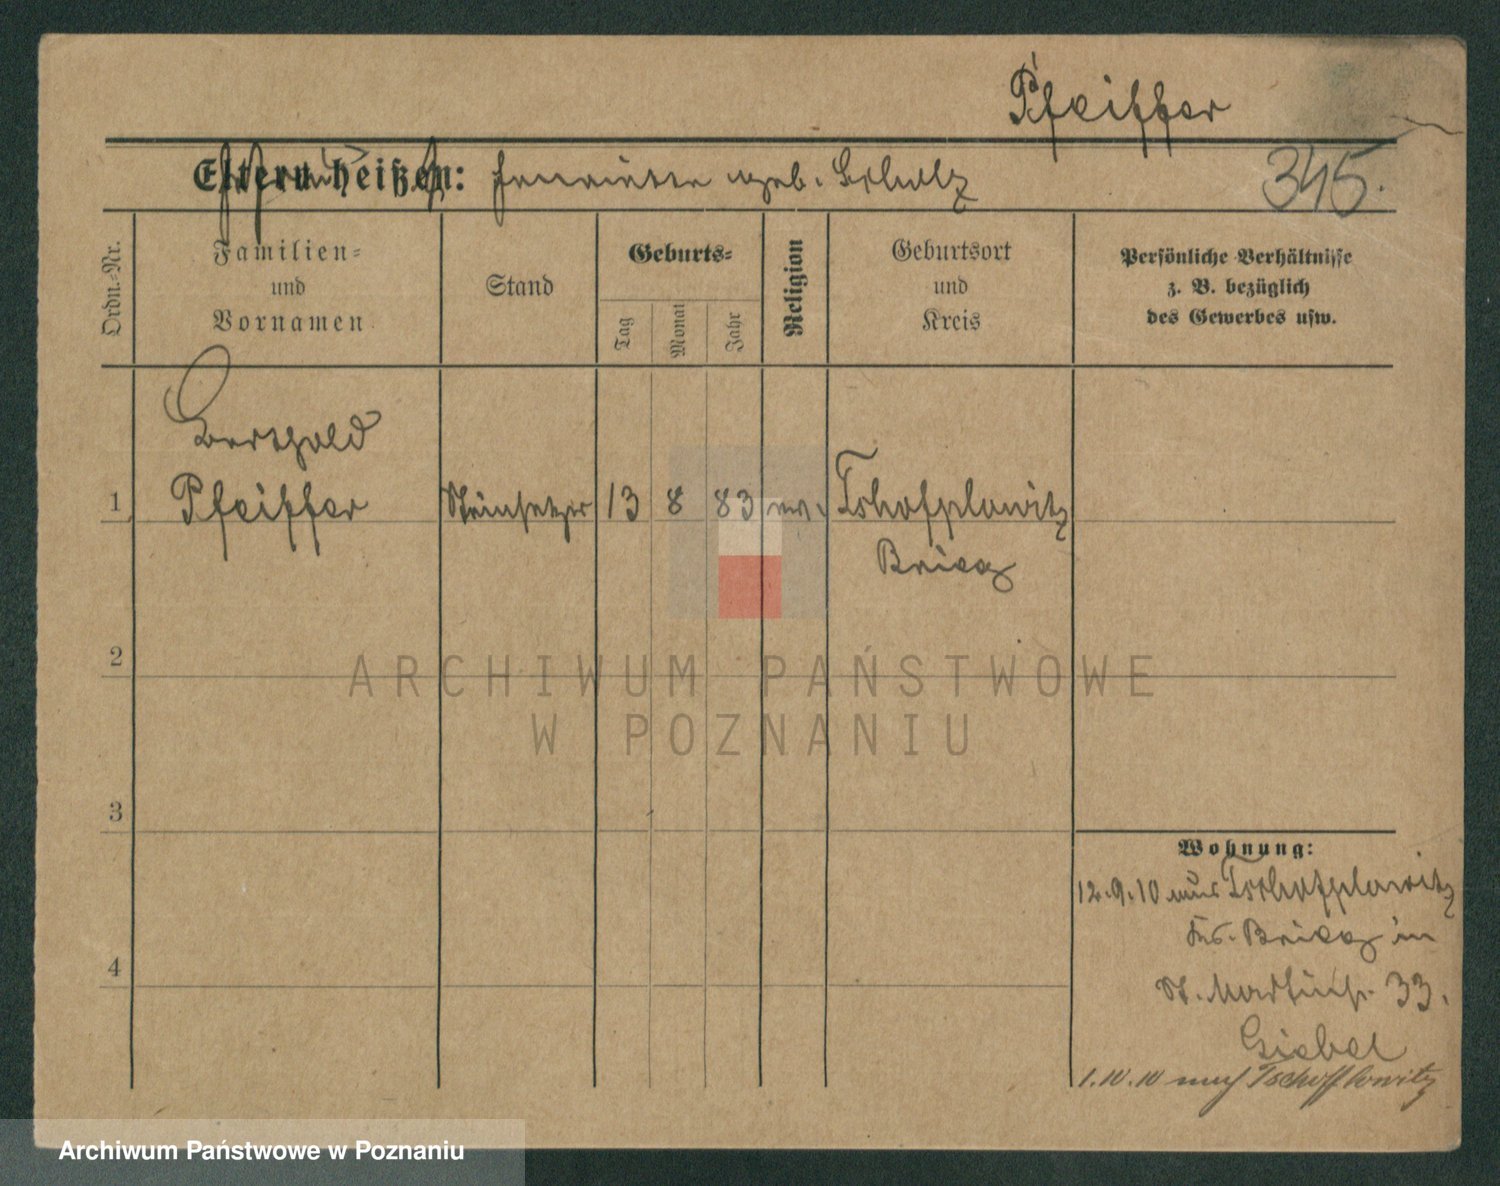 Pfeiffer
Eltern heißen: Henriette geb. Scholz
345.
Ordn.-Nr.
Familien-
und
Vornamen
Stand
Geburts-
Tag
Monat
Jahr
Religion
Geburtsort
und
Kreis
Persönliche Verhältnisse
z. B. bezüglich
des Gewerbes usw.
Berthold
1 Pfeiffer Steinsetzer 13 8 83 ev. Tschöplowitz
Brieg
2
3
4
Wohnung:
12.9.10 aus Tschöplowitz
Krs. Brieg in
St. Martinstr. 33.
Giebel
1.10.10 nach Tschöplowitz
ARCHIWUM PAŃSTWOWE
W POZNANIU
Archiwum Państwowe w Poznaniu